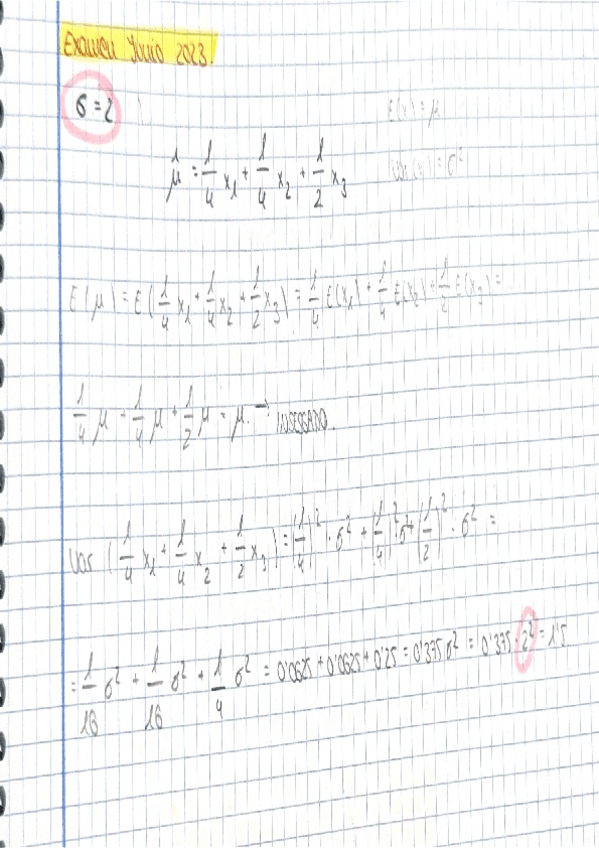 Examen Junio 2023.
σ = 2
E(x) = μ
μ̂ = 1/4 x₁ + 1/4 x₂ + 1/2 x₃
var(x) = σ²
E(μ) = E(1/4 x₁ + 1/4 x₂ + 1/2 x₃) = 1/4 E(x₁) + 1/4 E(x₂) + 1/2 E(x₃) =
1/4 μ + 1/4 μ + 1/2 μ = μ. → INSESGADO.
Var (1/4 x₁ + 1/4 x₂ + 1/2 x₃) = (1/4)² · σ² + (1/4)² σ² + (1/2)² · σ² =
= 1/16 σ² + 1/16 σ² + 1/4 σ² = 0'0625 + 0'0625 + 0'25 = 0'375 σ² = 0'375 · 2² = 1'5